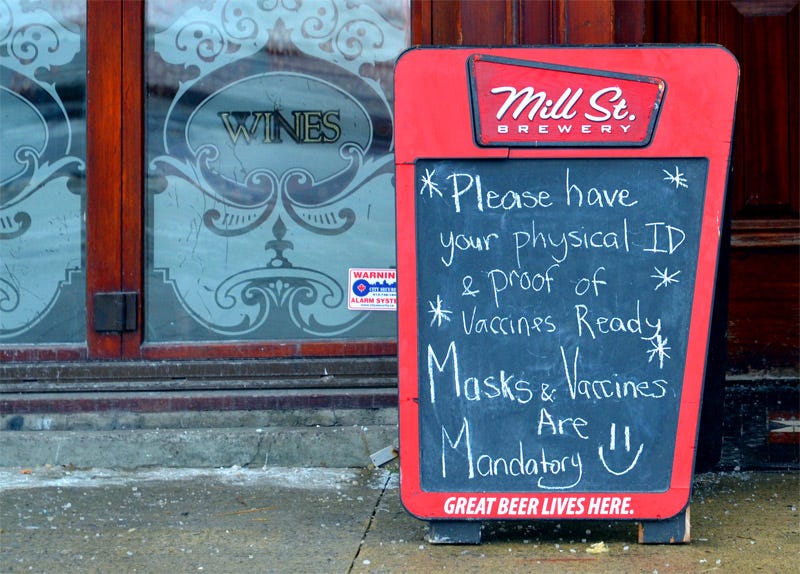 WINES
WARNIN
CITY SECURI
ALARM SYST
Mill St.
BREWERY
Please have
your physical ID
& proof of
Vaccines Ready
Masks & Vaccines
Are
Mandatory
GREAT BEER LIVES HERE.